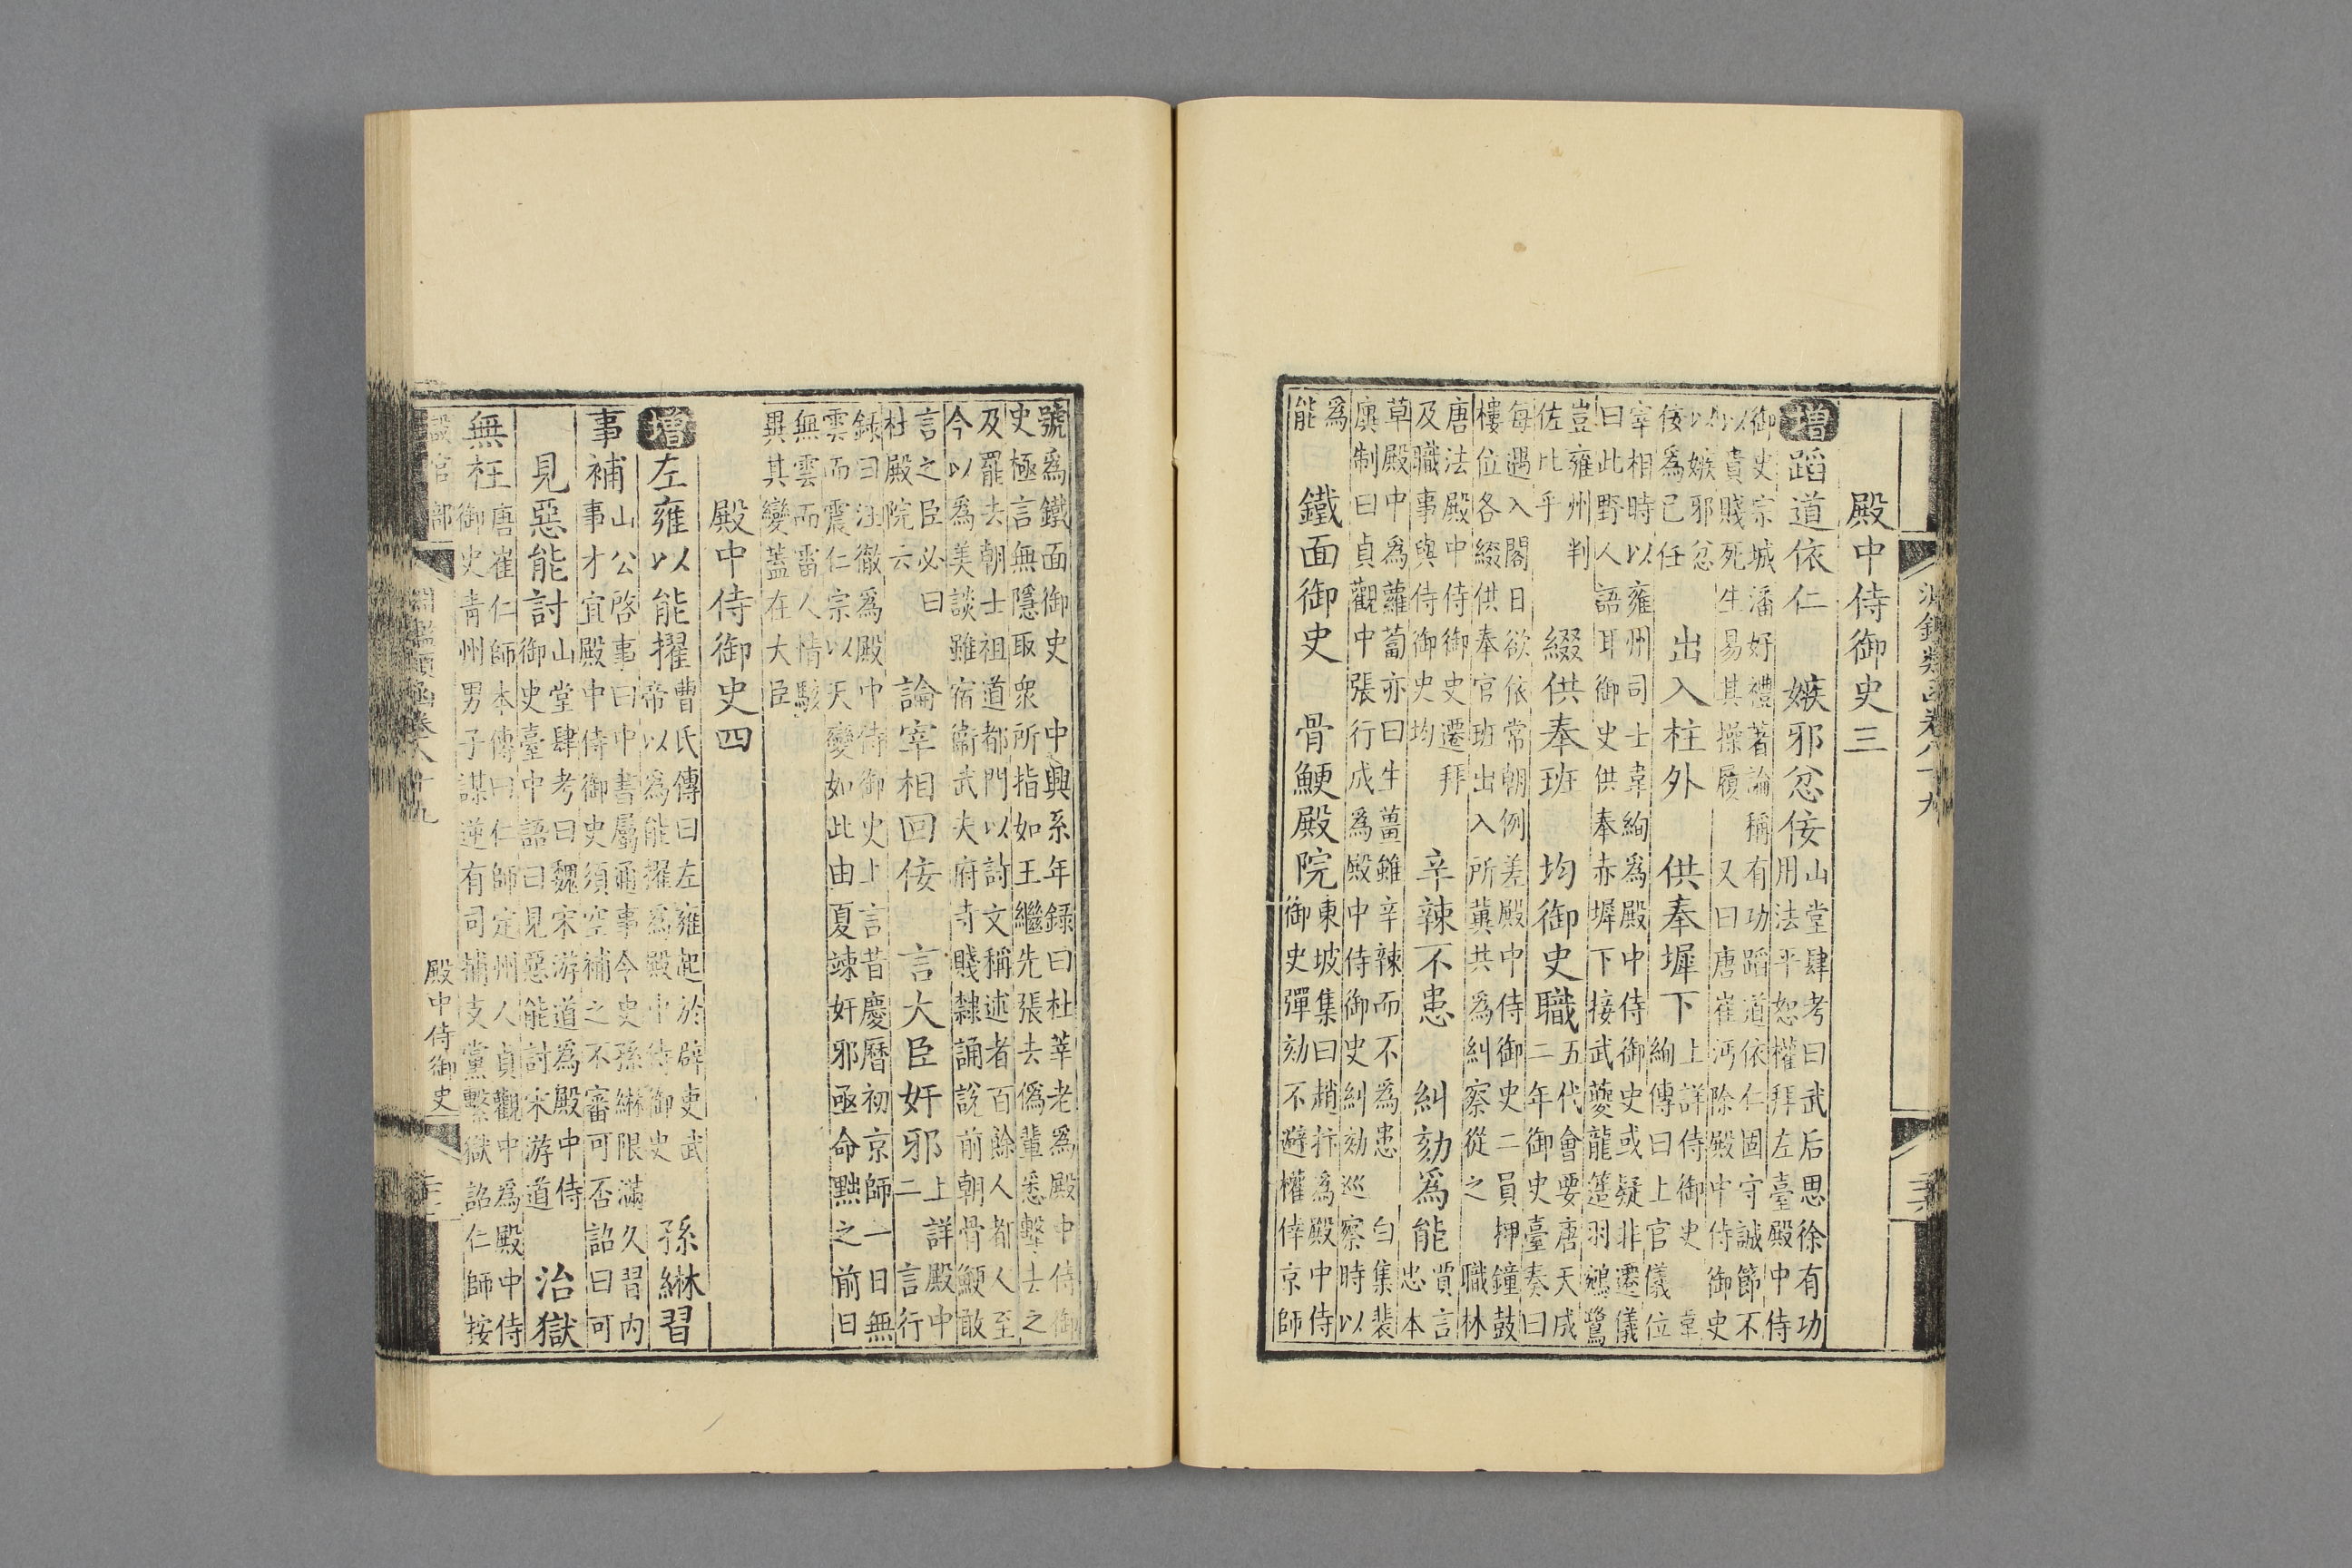 殿中侍御史三
增 蹈道依仁 嫉邪忿佞 山堂肆考曰武后思徐有功
用法平恕權拜左臺殿中侍
御史宗城潘好禮著論稱有功蹈道依仁固守誠節不
以貴賤死生易其操履 又曰唐崔沔除殿中侍御史
以嫉邪忿
佞爲己任 出入柱外 供奉墀下 上詳侍御史 韋
絢傳曰上官儀位
宰相時以雍州司士韋絢爲殿中侍御史或疑非遷儀
曰此野人語耳御史供奉赤墀下接武夔龍簉羽鵷鷺
豈雍州判
佐比乎 綴供奉班 均御史職 五代會要唐天成
二年御史臺奏曰
每遇入閣日欲依常朝例差殿中侍御史二員押鐘鼓
樓位各綴供奉官班出入所冀共爲糾察從之 職林
唐法殿中侍御史遷拜
及職事與侍御史均 辛辣不患 糾劾爲能 賈言
忠本
草殿中爲蘿蔔亦曰生薑雖辛辣而不爲患 白集裴
廙制曰貞觀中張行成爲殿中侍御史糾劾巡察時以
爲
能 鐵面御史 骨鯁殿院 東坡集曰趙抃爲殿中侍
御史彈劾不避權倖京師
號爲鐵面御史 中興系年録曰杜莘老爲殿中侍御
史極言無隱取衆所指如王繼先張去僞輩悉擊去之
及罷去朝士祖道都門以詩文稱述者百餘人都人至
今以爲美談雖宿衞武夫府寺賤隸誦說前朝骨鯁敢
言之臣必曰
杜殿院六 論宰相回佞 言大臣奸邪 上詳殿中
二 言行
録曰汪徹爲殿中侍御史上言昔慶曆初京師一日無
雲而震仁宗以天變如此由夏竦奸邪亟命黜之前日
無雲而雷人情駭
異其變蓋在大臣
殿中侍御史四
增 左雍以能擢 曹氏傳曰左雍起於辟吏武
帝以爲能擢爲殿中侍御史 孫綝習
事 補 山公啓事曰中書屬通事令史孫綝限滿久習内
事才宜殿中侍御史須空補之不審可否詔曰可
見惡能討 山堂肆考曰魏宋游道爲殿中侍
御史臺中語曰見惡能討宋游道 治獄
無枉 唐崔仁師本傳曰仁師定州人貞觀中爲殿中侍
御史青州男子謀逆有司捕支黨繫獄詔仁師按
設官部 淵鑑類函卷八十九 殿中侍御史